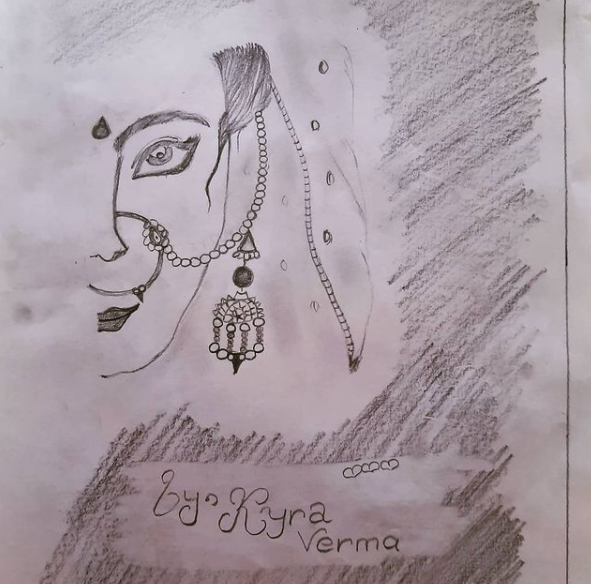 By, Kyra
Verma